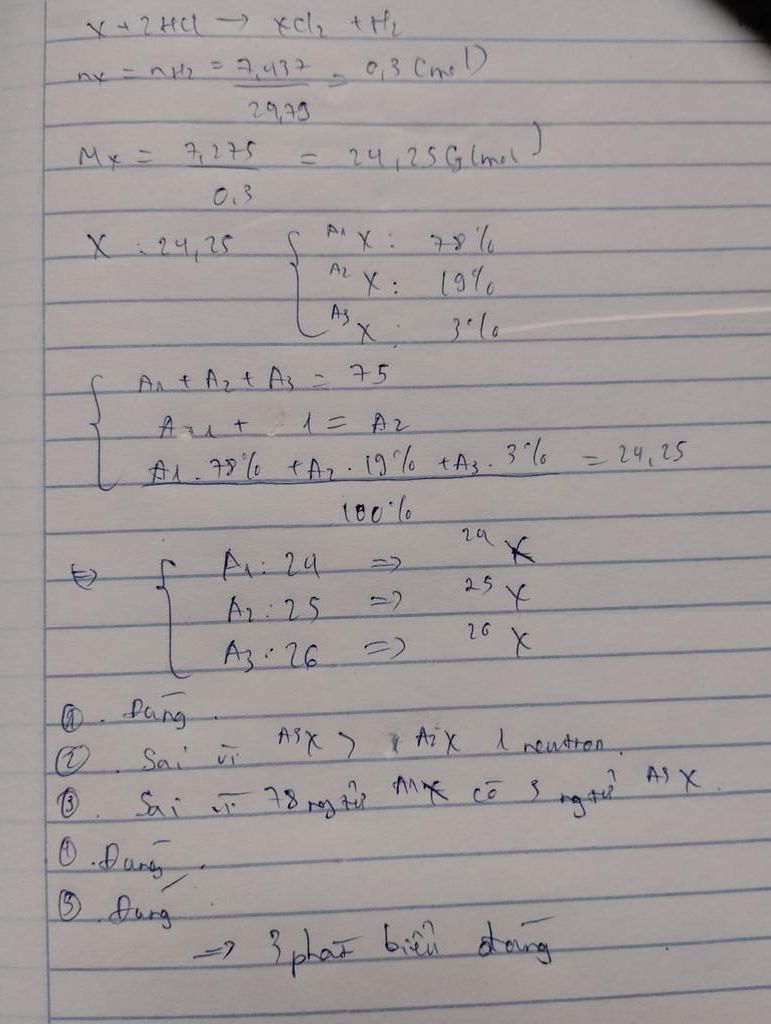 X + 2HCl → XCl₂ + H₂
nx = nH₂ = 7,437 / 24,79 = 0,3 (mol)
Mx = 7,275 / 0,3 = 24,25 (g/mol)
X : 24,25 { A1 X : 78%
A2 X : 19%
A3 X : 3%
{ A1 + A2 + A3 = 75
A1 + 1 = A2
A1 . 78% + A2 . 19% + A3 . 3% / 100% = 24,25
⇔ { A1 : 24 => 24 X
A2 : 25 => 25 X
A3 : 26 => 26 X
① . Đúng .
② . Sai vì A3X > A2X 1 neutron .
③ . Sai vì 78 ng tử A1X có 3 ng tử A3 X .
④ . Đúng .
⑤ . Đúng
=> 3 phát biểu đúng